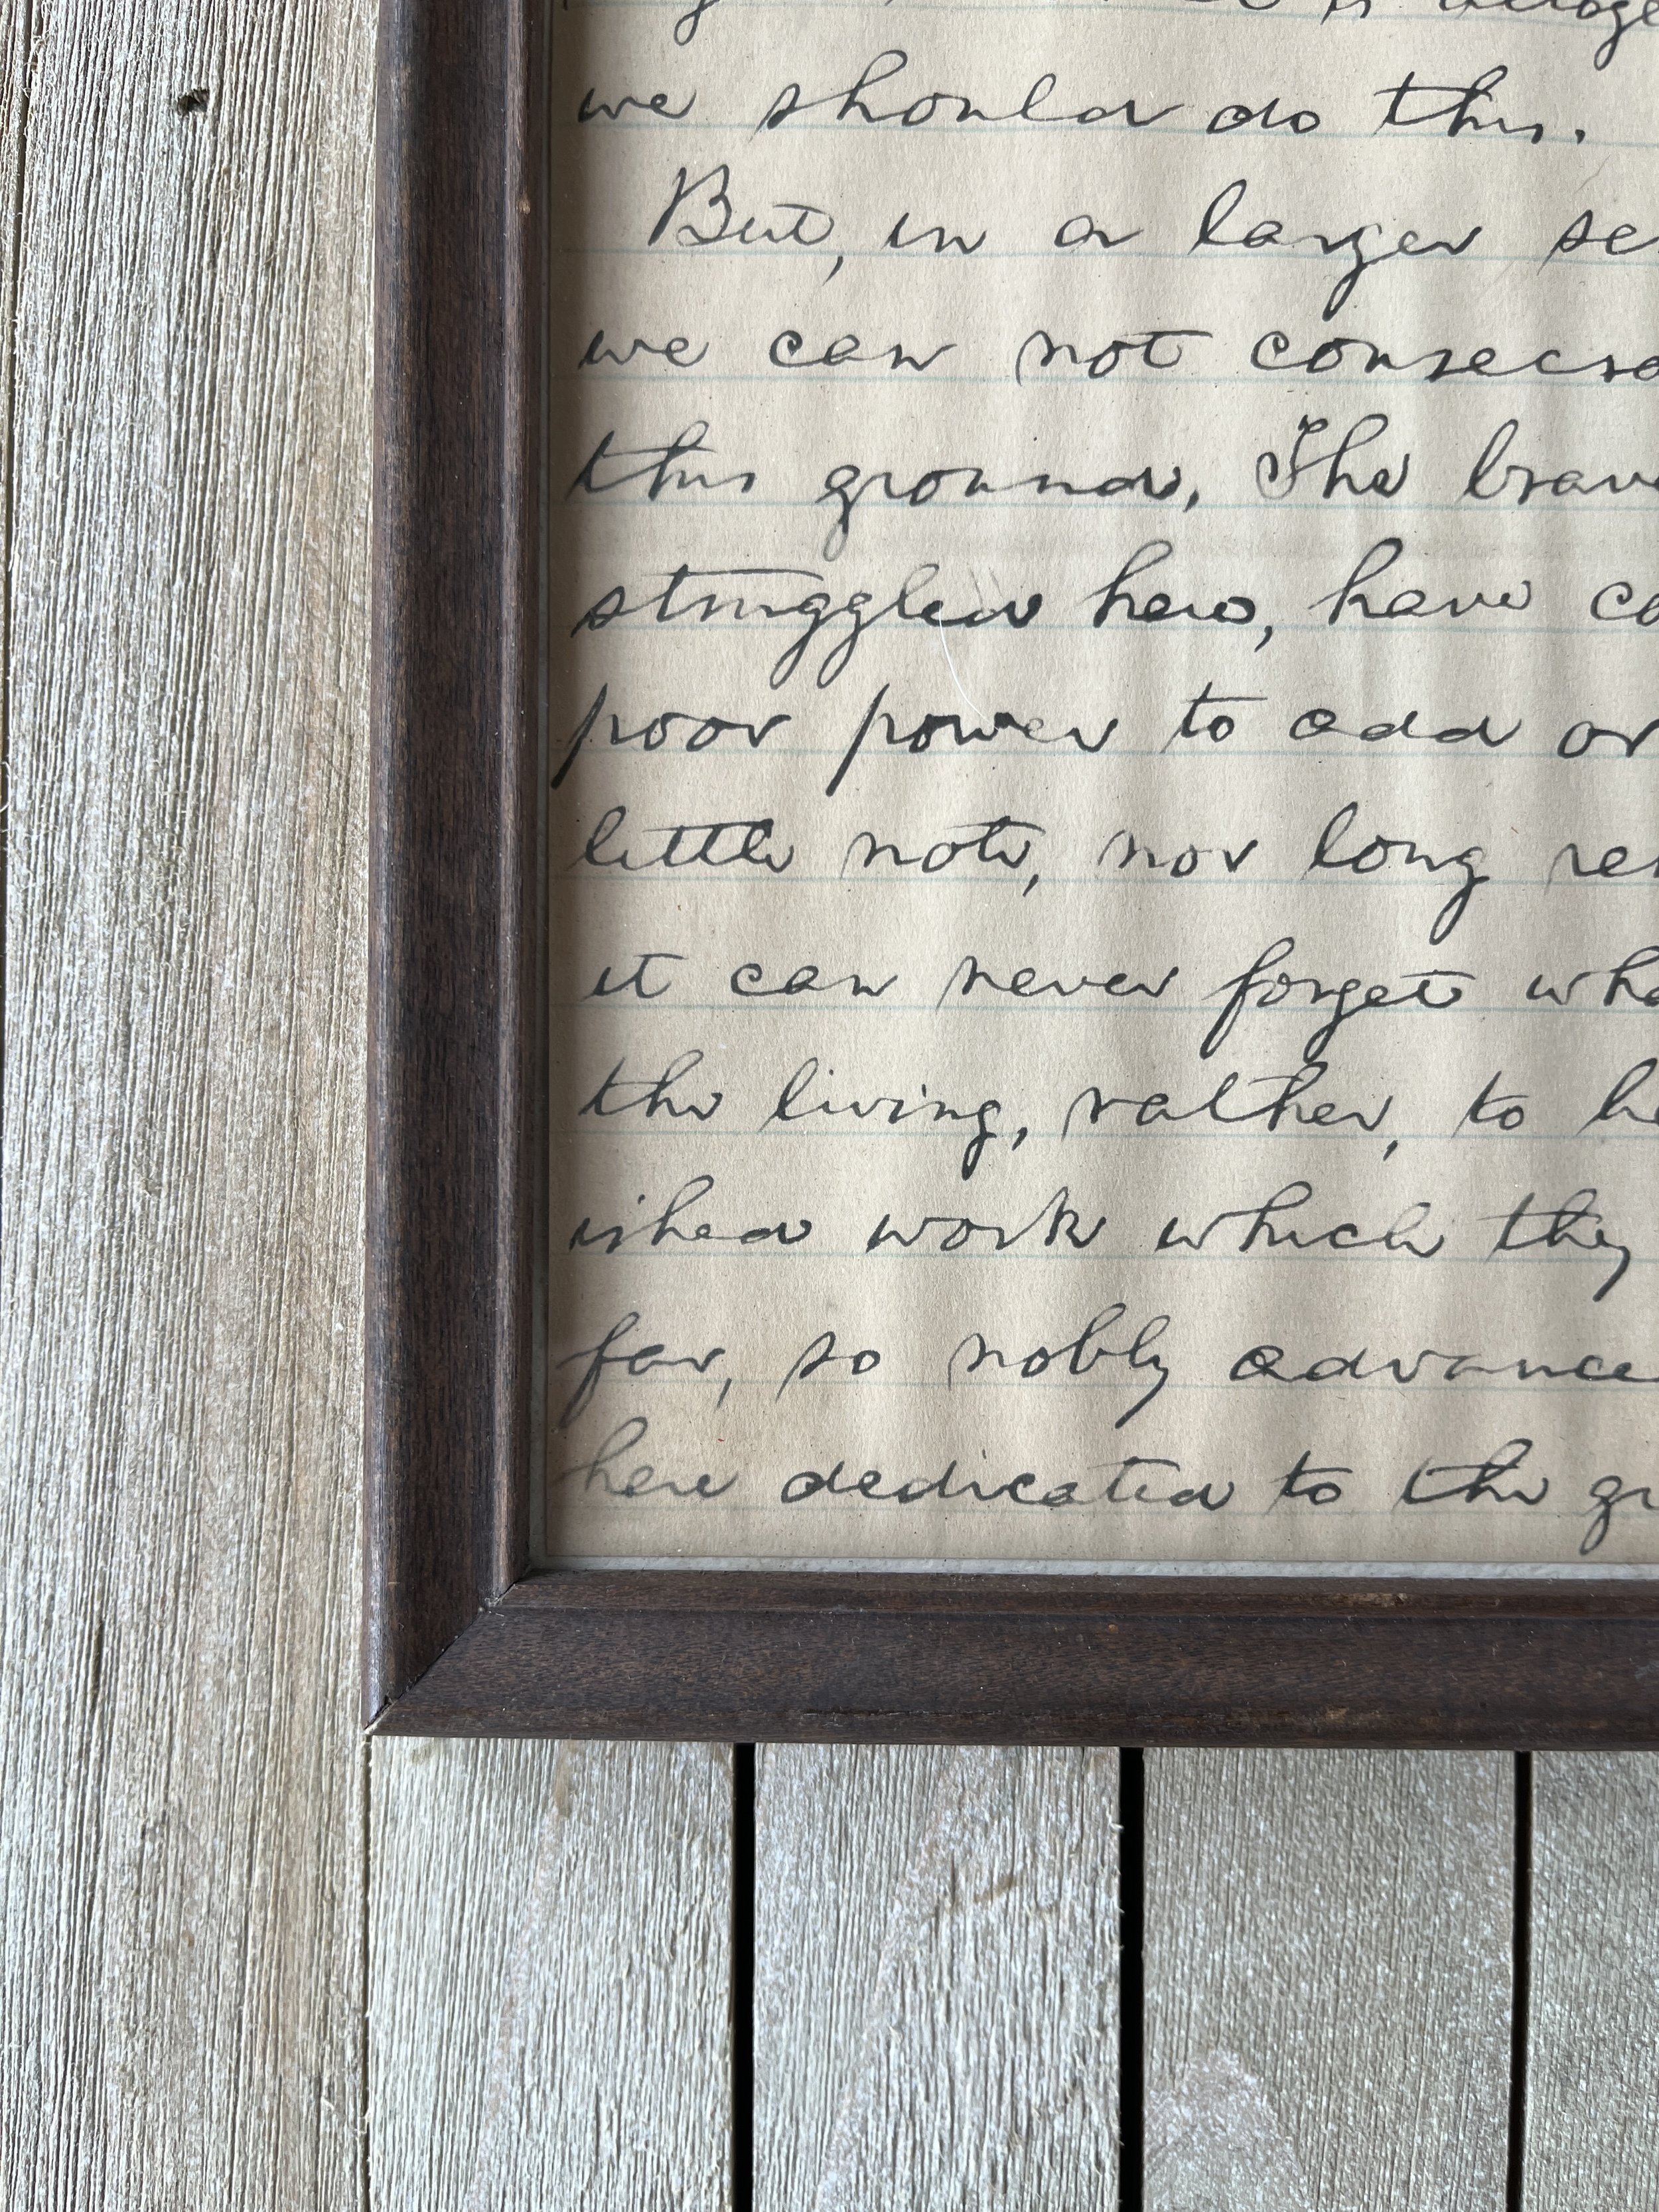 is altoge
we should do this.
But, in a larger se
we can not consecra
this ground. The brave
struggled here, have co
poor power to add or
little note, nor long re
it can never forget wha
the living, rather, to be
ished work which they
far, so nobly advance
here dedicated to the gr